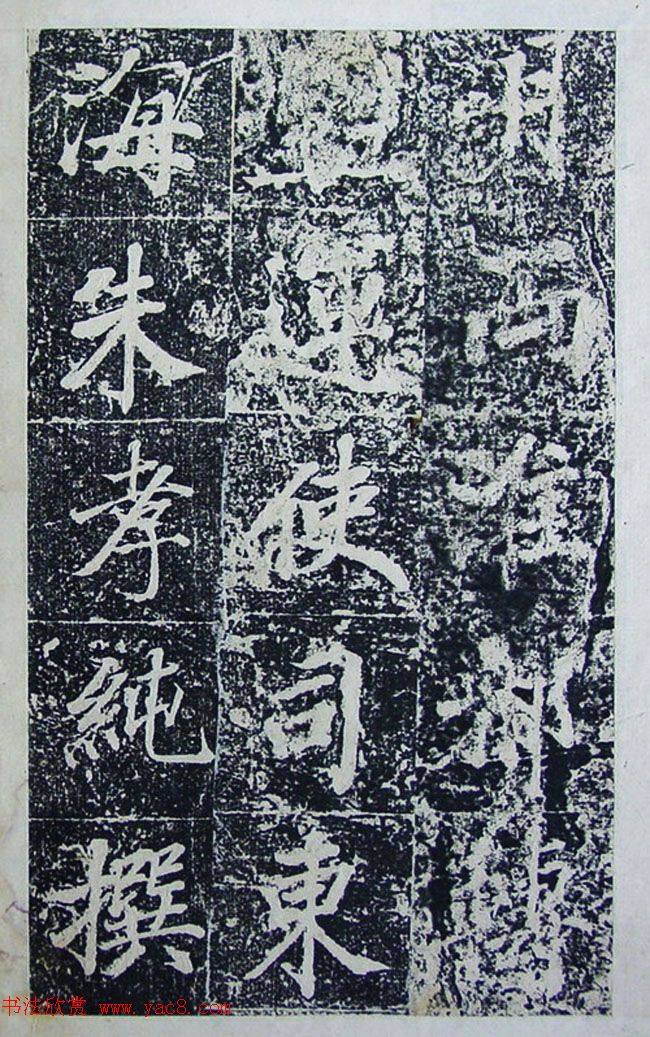 兩淮都轉
鹽運使司東
海朱孝純撰
书法欣赏 www.yac8.com